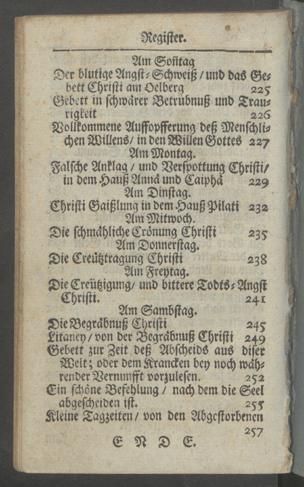 Register.
Am Sontag
Der blutige Angst-Schweiß/ und das Ge-
bett Christi am Oelberg 225
Gebett in schwärer Betrübnuß und Trau-
rigkeit 226
Vollkommene Auffopfferung deß Menschli-
chen Willens/ in den Willen Gottes 227
Am Montag.
Falsche Anklag/ und Verspottung Christi/
in dem Hauß Annä und Caiphä 229
Am Dinstag.
Christi Gaißlung in dem Hauß Pilati 232
Am Mitwoch.
Die schmähliche Crönung Christi 235
Am Donnerstag.
Die Creütztragung Christi 238
Am Freytag.
Die Creützigung/ und bittere Todts-Angst
Christi. 241
Am Sambstag.
Die Begräbnuß Christi 245
Litaney/ von der Begräbnuß Christi 249
Gebett zur Zeit deß Abscheids aus diser
Welt; oder dem Krancken bey noch wäh-
render Vernunfft vorzulesen. 252
Ein schöne Befehlung/ nach dem die Seel
abgescheiden ist. 255
Kleine Tagzeiten/ von den Abgestorbenen
257
E N D E.